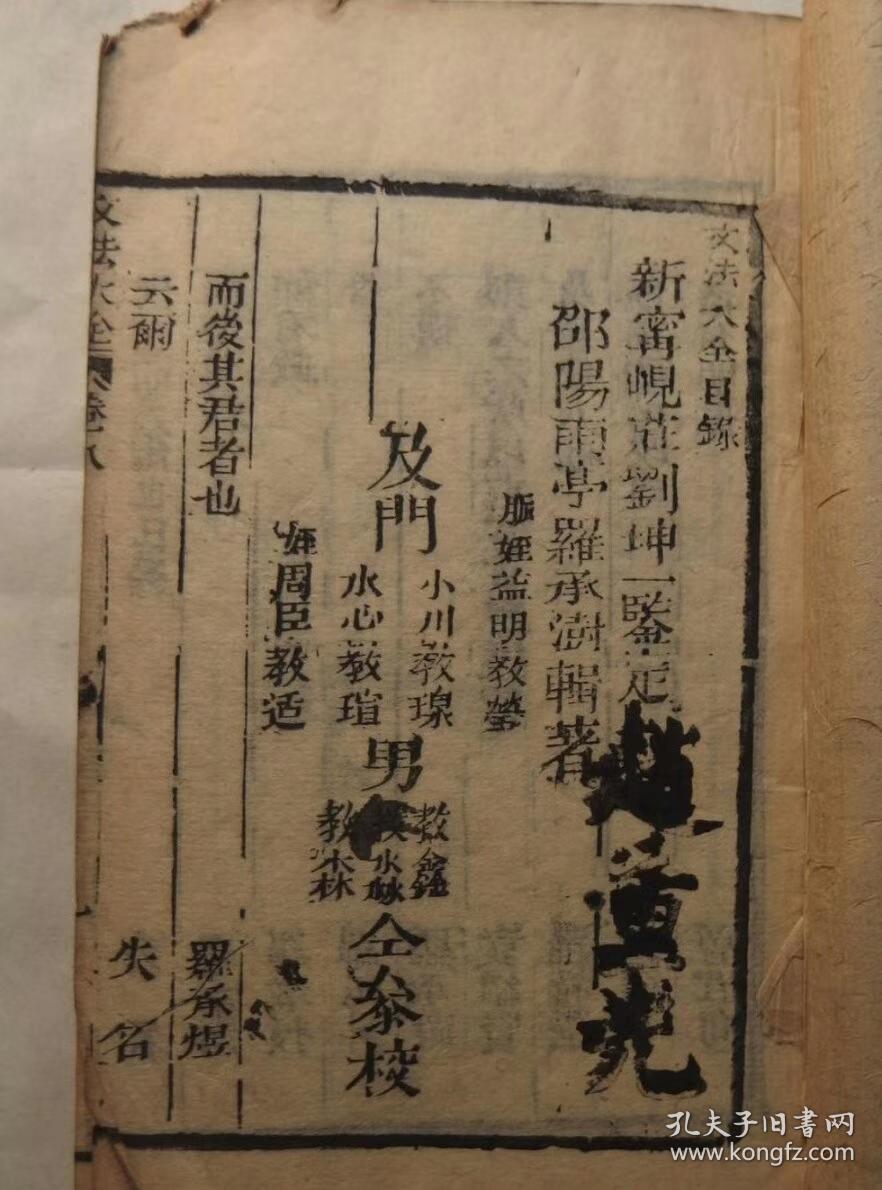 文法大全目錄
新甯峴莊劉坤一鑒定
邵陽雨亭羅承澍輯著
胞姪益明教瑩
及門
小川教瑔
水心教瑄
姪周臣教适
男
教鑫
教森
仝叅校
而後其君者也
羅承煜
云爾
失名
文法大全
卷八
孔夫子旧书网
www.kongfz.com